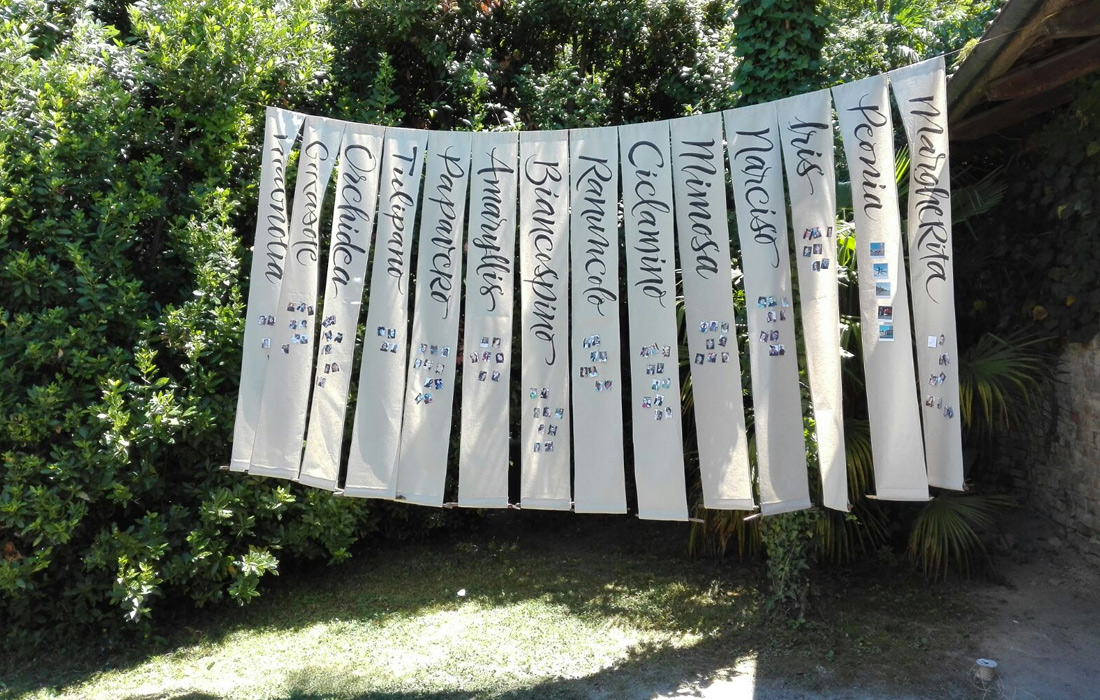 Girasole
Orchidea
Tulipano
Papavero
Amaryllis
Biancospino
Ranuncolo
Ciclamino
Mimosa
Narciso
Iris
Peonia
Margherita